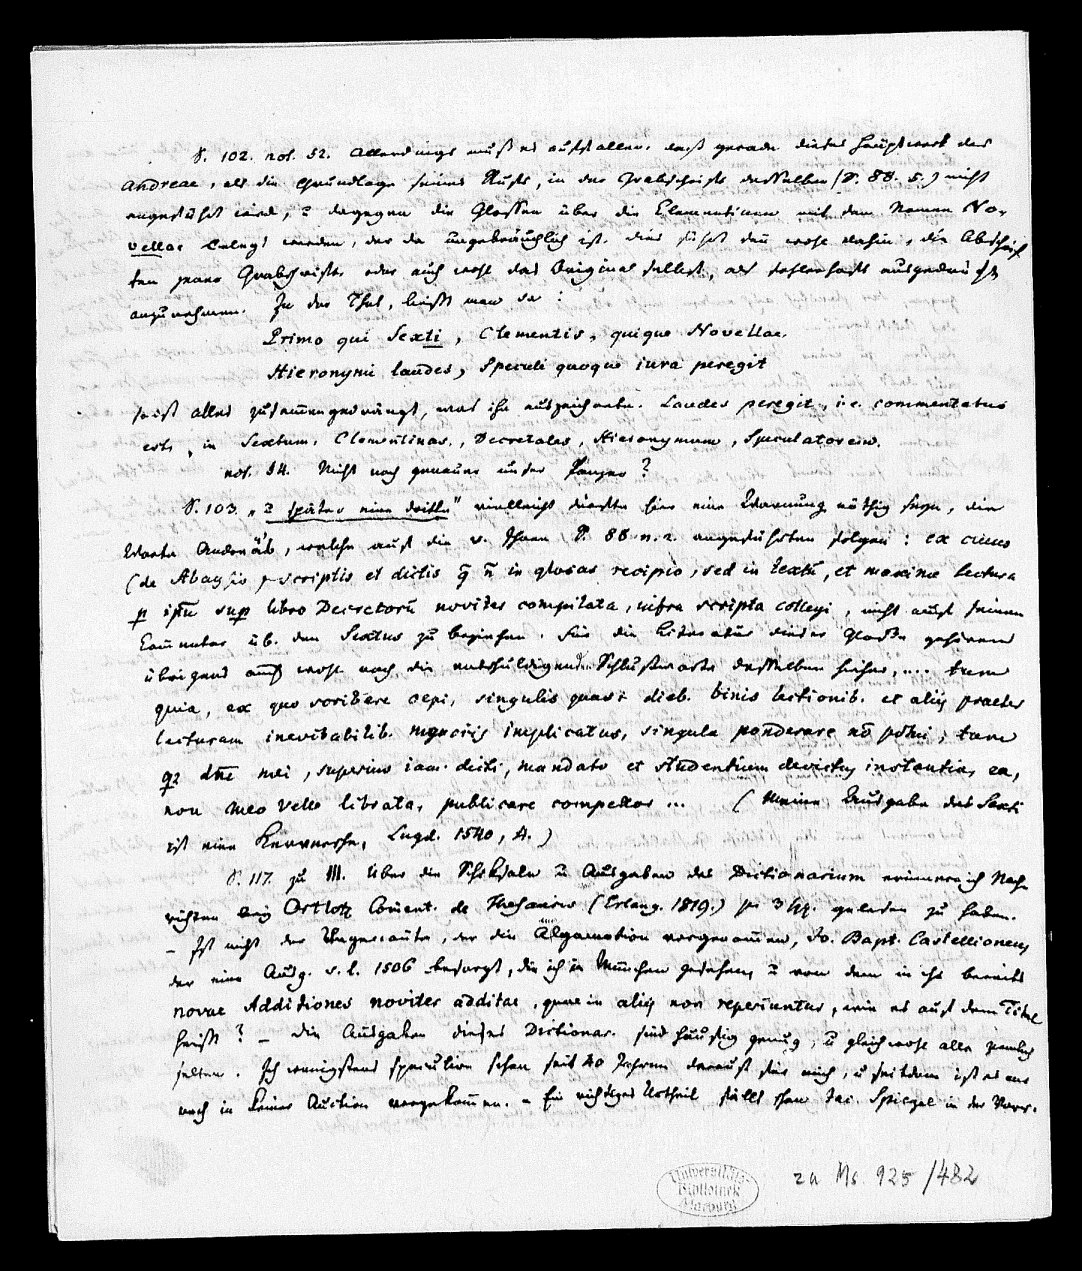 S. 102. not. 52. Allerdings muß es auffallen, daß gerade dieses Hauptwerk des
Andreae, als die Grundlage seines Ruhms, in der Grabschrift desselben (S. 88. 5.) nicht
angeführt wird, u dagegen die Glossen über die Clementinen mit dem Namen No-
vellae belegt werden, der da ungebräuchlich ist. Dies führt denn wohl dahin, die Abschrif
ten jener Grabschrift oder auch wohl das Original selbst, als fehlerhaft ausgedrückt
anzunehmen. In der That, liest man da:
Primo qui Sexti, Clementis, quique Novellae,
Hieronymi laudes, Speculi quoque iura peregit
so ist alles zusammengedrängt, was ihn auszeichnete. Laudes peregit, i. e. commentatus
est, in Sextum, Clementinas, Decretales, Hieronymum, Speculatorem.
not. 54. Nicht noch genauer in der Panzer?
S. 103. „u später eine dritte" vielleicht dürfte hier eine Warnung nöthig seyn, die
Worte Andreäs, welche auf die v. Ihnen S. 88 n. r. angeführten folgen: ex cuius
(de Abaysio) scriptis et dictis q̄ n̄ in glosas recipio, sed in textū, et maxime lectura
p ip̄m sup libro Decretorū noviter compilata, infra scripta collegi, nicht auf seinen
Com̄entar üb. den Sextus zu beziehen. Für die Literatur dieser Glosse gehören
übrigens auch wohl noch die entschuldigenden Schlußworte desselben hieher, .... tum
quia, ex quo scribere cepi, singulis quasi dieb. binis lectionib. et aliis praeter
lecturam inevitabilib. negociis implicatus, singula ponderare nō potui; tum
q2 dn̄e mei, superius iam dicti, mandato et studentium devictus instantia, ea,
non meo velle librata, publicare compellor ... (Meine Ausgabe des Sexti
ist eine Lugd. 1540, 4.)
S. 117. zu III. Über die Schicksale u Ausgaben des Dictionarium erinnere ich Nach
richten aus Ortloff Com̄ent. de (Erlang. 1819.) p. 3 gelesen zu haben.
– Ist nicht der Ungenannte, der die vorgenom̄en, Jo. Bapt. Castellioneus
der eine Ausg. s. l. 1506 besorgt, die ich in München gesehen, u von dem in ihr bereits
novae Additiones noviter additae, quae in aliis non reperiuntur, wie es auf dem Titel
heißt? – die Ausgaben dieses Dictionar. sind häufig genug, u gleichwohl alle ziemlich
selten. Ich wenigstens speculire schon seit 40 Jahren darauf für mich, u seitdem ist es mir
noch in keiner Auction vorgekom̄en. – Ein richtiges Urtheil fällt schon Jac. Spiegel in der Vorr.
Universitäts-
Bibliothek
Marburg
za Ms. 925/482